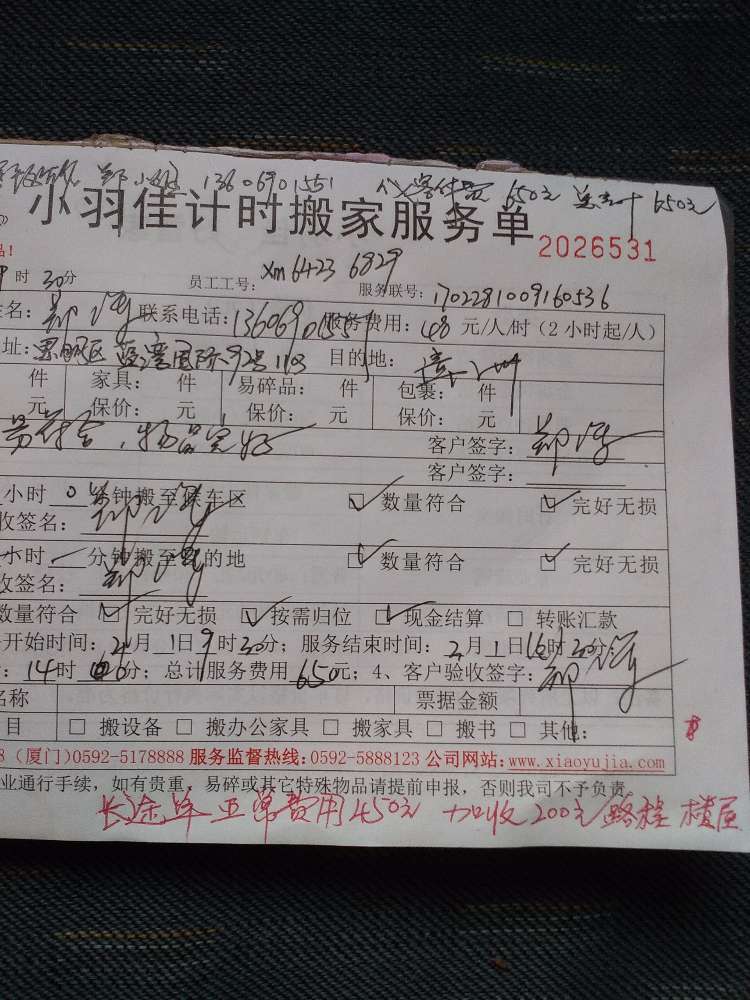 郑小姐 13606901551 650元 650元
小羽佳计时搬家服务单 2026531
时30分 员工工号: xm6423 6829 服务联号: 1702281009160536
名: 郑 联系电话: 13606901551 服务费用: 48 元/人/时（2小时起/人）
址: 思明区蓝湾国际 1103 目的地: 漳州
件 家具: 件 易碎品: 件 包裹: 件
元 保价: 元 保价: 元 保价: 元
符合，物品完好 客户签字: 郑
客户签字:
小时 0 分钟搬至候车区 ☑ 数量符合 ☑ 完好无损
收签名: 郑
小时 分钟搬至目的地 ☑ 数量符合 ☑ 完好无损
收签名: 郑
数量符合 ☑ 完好无损 ☑ 按需归位 ☑ 现金结算 □ 转账汇款
开始时间: 月 1 日 9 时 30 分；服务结束时间: 月 1 日 16 时 30 分；
: 14 时 分；总计服务费用 650 元；4、客户验收签字: 郑
名称 票据金额
目 □ 搬设备 □ 搬办公家具 □ 搬家具 □ 搬书 □ 其他:
8（厦门）0592-5178888 服务监督热线: 0592-5888123 公司网站: www.xiaoyujia.com
业通行手续，如有贵重、易碎或其它特殊物品请提前申报，否则我司不予负责。
长途车正常费用450元 加收200元路程 楼层